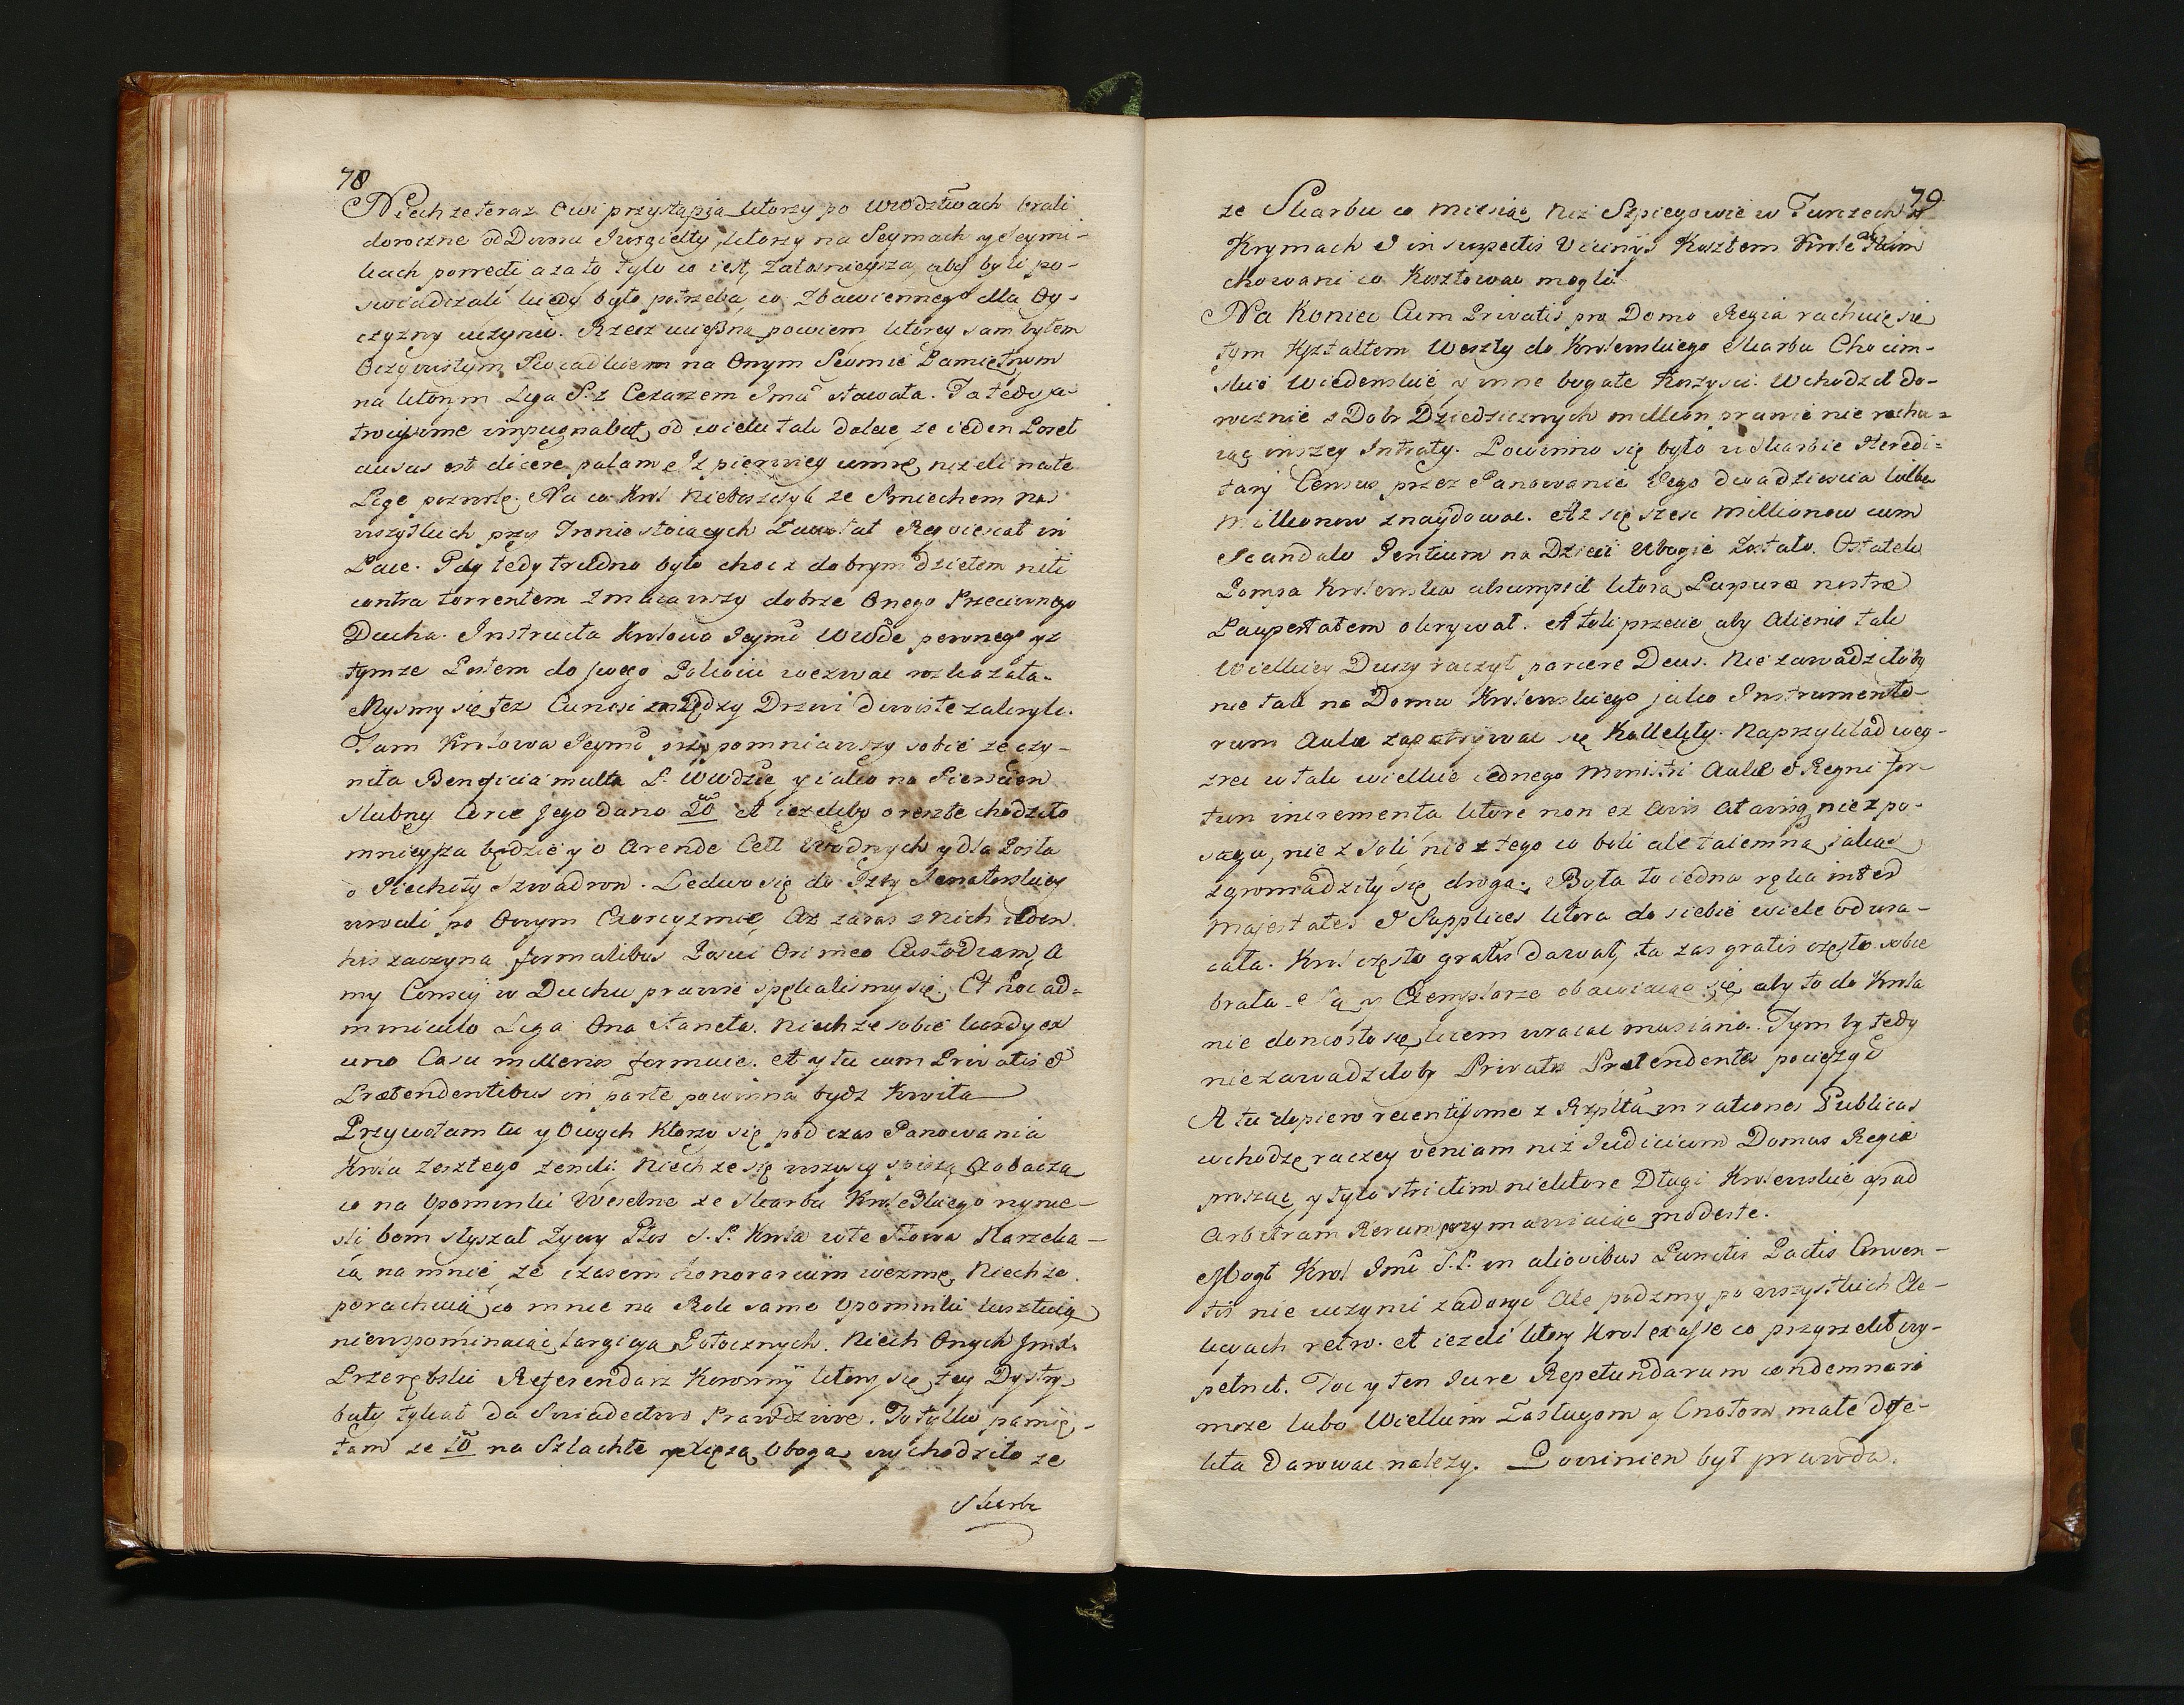 78
Niechze teraz Owi przystąpią ktorzy po Wodztwach brali
doroczne od Dworu Jurgielty, ktorzy na Seymach y Seymi-
kach porredi a za to tylo co iest, zatosnieysza, aby byli po-
swiadczali kiedy było potrzeba, co Zbawiennego dla Oy-
czyzny uczynic. Rzecz smieszną powiem ktorey sam byłem
Oczywistym Swiadkiem na Onym Seymie Pamiętnym
na ktorym Liga S. z Cezarzem Jmć stawała. Ta tedy a
twissime impugnabat od wielu tak dalece, ze ieden Poseł
ausus est dicere palam ę Iz pierwiey umrę, nizeli na tę
Ligę pozwolę. Na co Krol Nieboszczyk ze Smiechem na
wszystkich przy Tronie stoiących zawołał Reqviescat in
Pace. Gdy tedy trudno było choc z dobrym dziełem niti
contra torrentem zmacawszy dobrze Onego Przeciwnego
Ducha. Instructa Krolowa Jeymć Wwdę pewnego yz
tymze Posłem do swego Pokoiu wezwac rozkazała.
Mysmy się tez Curiosi między Drzwi dwoiste zakryli.
Tam Krolowa Jeymć przypomniawszy sobie ze czy-
niła Beneficia multa P. Wwdzie, y iako na Pierscien
slubny Corce Jego dano 20 A iezeliby oresztę chodziło
mnieysza będzie y o Arendę Cełł Wodnych y dla Posła
o Piechoty Szwadron. Ledwo się do Izby Senatorskiey
wrocili po Onym Exorcyzmie, Az zaraz z nich ieden
his zaczyna formalibus Posui Ori meo Custodiam, A
my Conscij w Duchu prawie spękalismy się, Et hoc ad-
miniculo Liga Ona stanęła. Niechze sobie kazdy ex
uno Casu millenos formuie. A y tu cum Privatis &
Prætendentibus in parte powinna bydz Kwita
Przywołam tu y Owych Ktorzy się pod czas Panowania
Krola Zeszłego zenili. Niech ze się wszyscy spiszą, Zobaczą
co na Upominki Weselne ze Skarbu Krolewskiego wynie-
sli bom słyszał Zywy Głos S. P. Krola wte Słowa Narzeka-
ią na mnie, ze czasem honorarium wezmę, Niech ze
porachuią co mnie na Rok same Upominki kusztuią
niewspominaiąc Largicya Potocznych. Niech Onych Jmć
Przerębski Referendarz Koronny ktory się tey Dystry-
buty tykał da Swiadectwo Prawdziwe. Ja tylko pamię-
tam ze 10 na Szlachtę Ubogą wychodziło ze
Skarbu
79
ze Skarbu co miesiąc Niz Szpiegowie w Turczech w
Krymach & in suspectis Vicinijs Kosztem Krolewskim
chowani co Kosztowac mogli
Na Koniec Cum Privatis pro Domo Regia rachuię się
tym Kształtem Weszły do Krolewskiego Skarbu Chocim-
skie Wiedenskie y inne bogate Korzysci. Wchodził do-
rocznie z Dobr Dziedzicznych million prawie nie rachu-
iąc inszey Intraty. Powinno się było w Skarbie Heredi-
tarij Census przez Panowanie Jego dwadziescia kilka
Millionow znaydowac. Az się szesc Millionow cum
Scandalo Gentium na Dzieci Ubogie zostało. Ostatek
Pompa Krolewska absumpsit ktora Purpura nostræ
Paupertatem okrywał. A toli przecie aby Alienis tak
Wielkiey Duszy raczył parcere Deus. Nie zawadziłoby
nie tak na Domu Krolewskiego jako Instrumento-
rum Aulæ zapatrywac się Kollekty. Naprzykład wey-
zrec w tak wielkie iednego Ministri Aulæ & Regni for-
tun incrementa ktore non ex Avis Atavisq nie z po-
sagu, nie z soli nie z tego co boli ale taiemną iakąs
zgromadziły się drogą. Była to iedna ręka inter
majestates & Supplices ktora do siebie wiele odwra-
cała. Krol często gratis dawał, ta zas gratis często sobie
brała. Są y Exemplarze obawiaiąc się, aby to do Krola
nie doniosło się, licem wracac musiano. Tym by tedy
niezawadziłoby Privatos Prætendentes pocieszyc
A tu dopiero recentissime z Rzpltą in rationes Publicas
wchodzę raczey veniam niz Iudicium Domus Regiæ
prosząc, y tylo strictim niektore Długi Krolewskie apud
Arbitram Rerum przymawiaiąc modeste.
Mogł Krol Jmć S. P. in aliqvibus Punctis Pactis Conven-
tis nie uczynic zadosyc Ale podzmy po wszystkich Ele-
kcyach retro. A iezeli ktory Krol ex asse co przyrzekł wy-
pełnił. Toc y ten Iure Repetundarum condemnari
moze lubo Wielkim Zasługom y Cnotom małe defe-
kta darowac nalezy. Powinien był prawda.